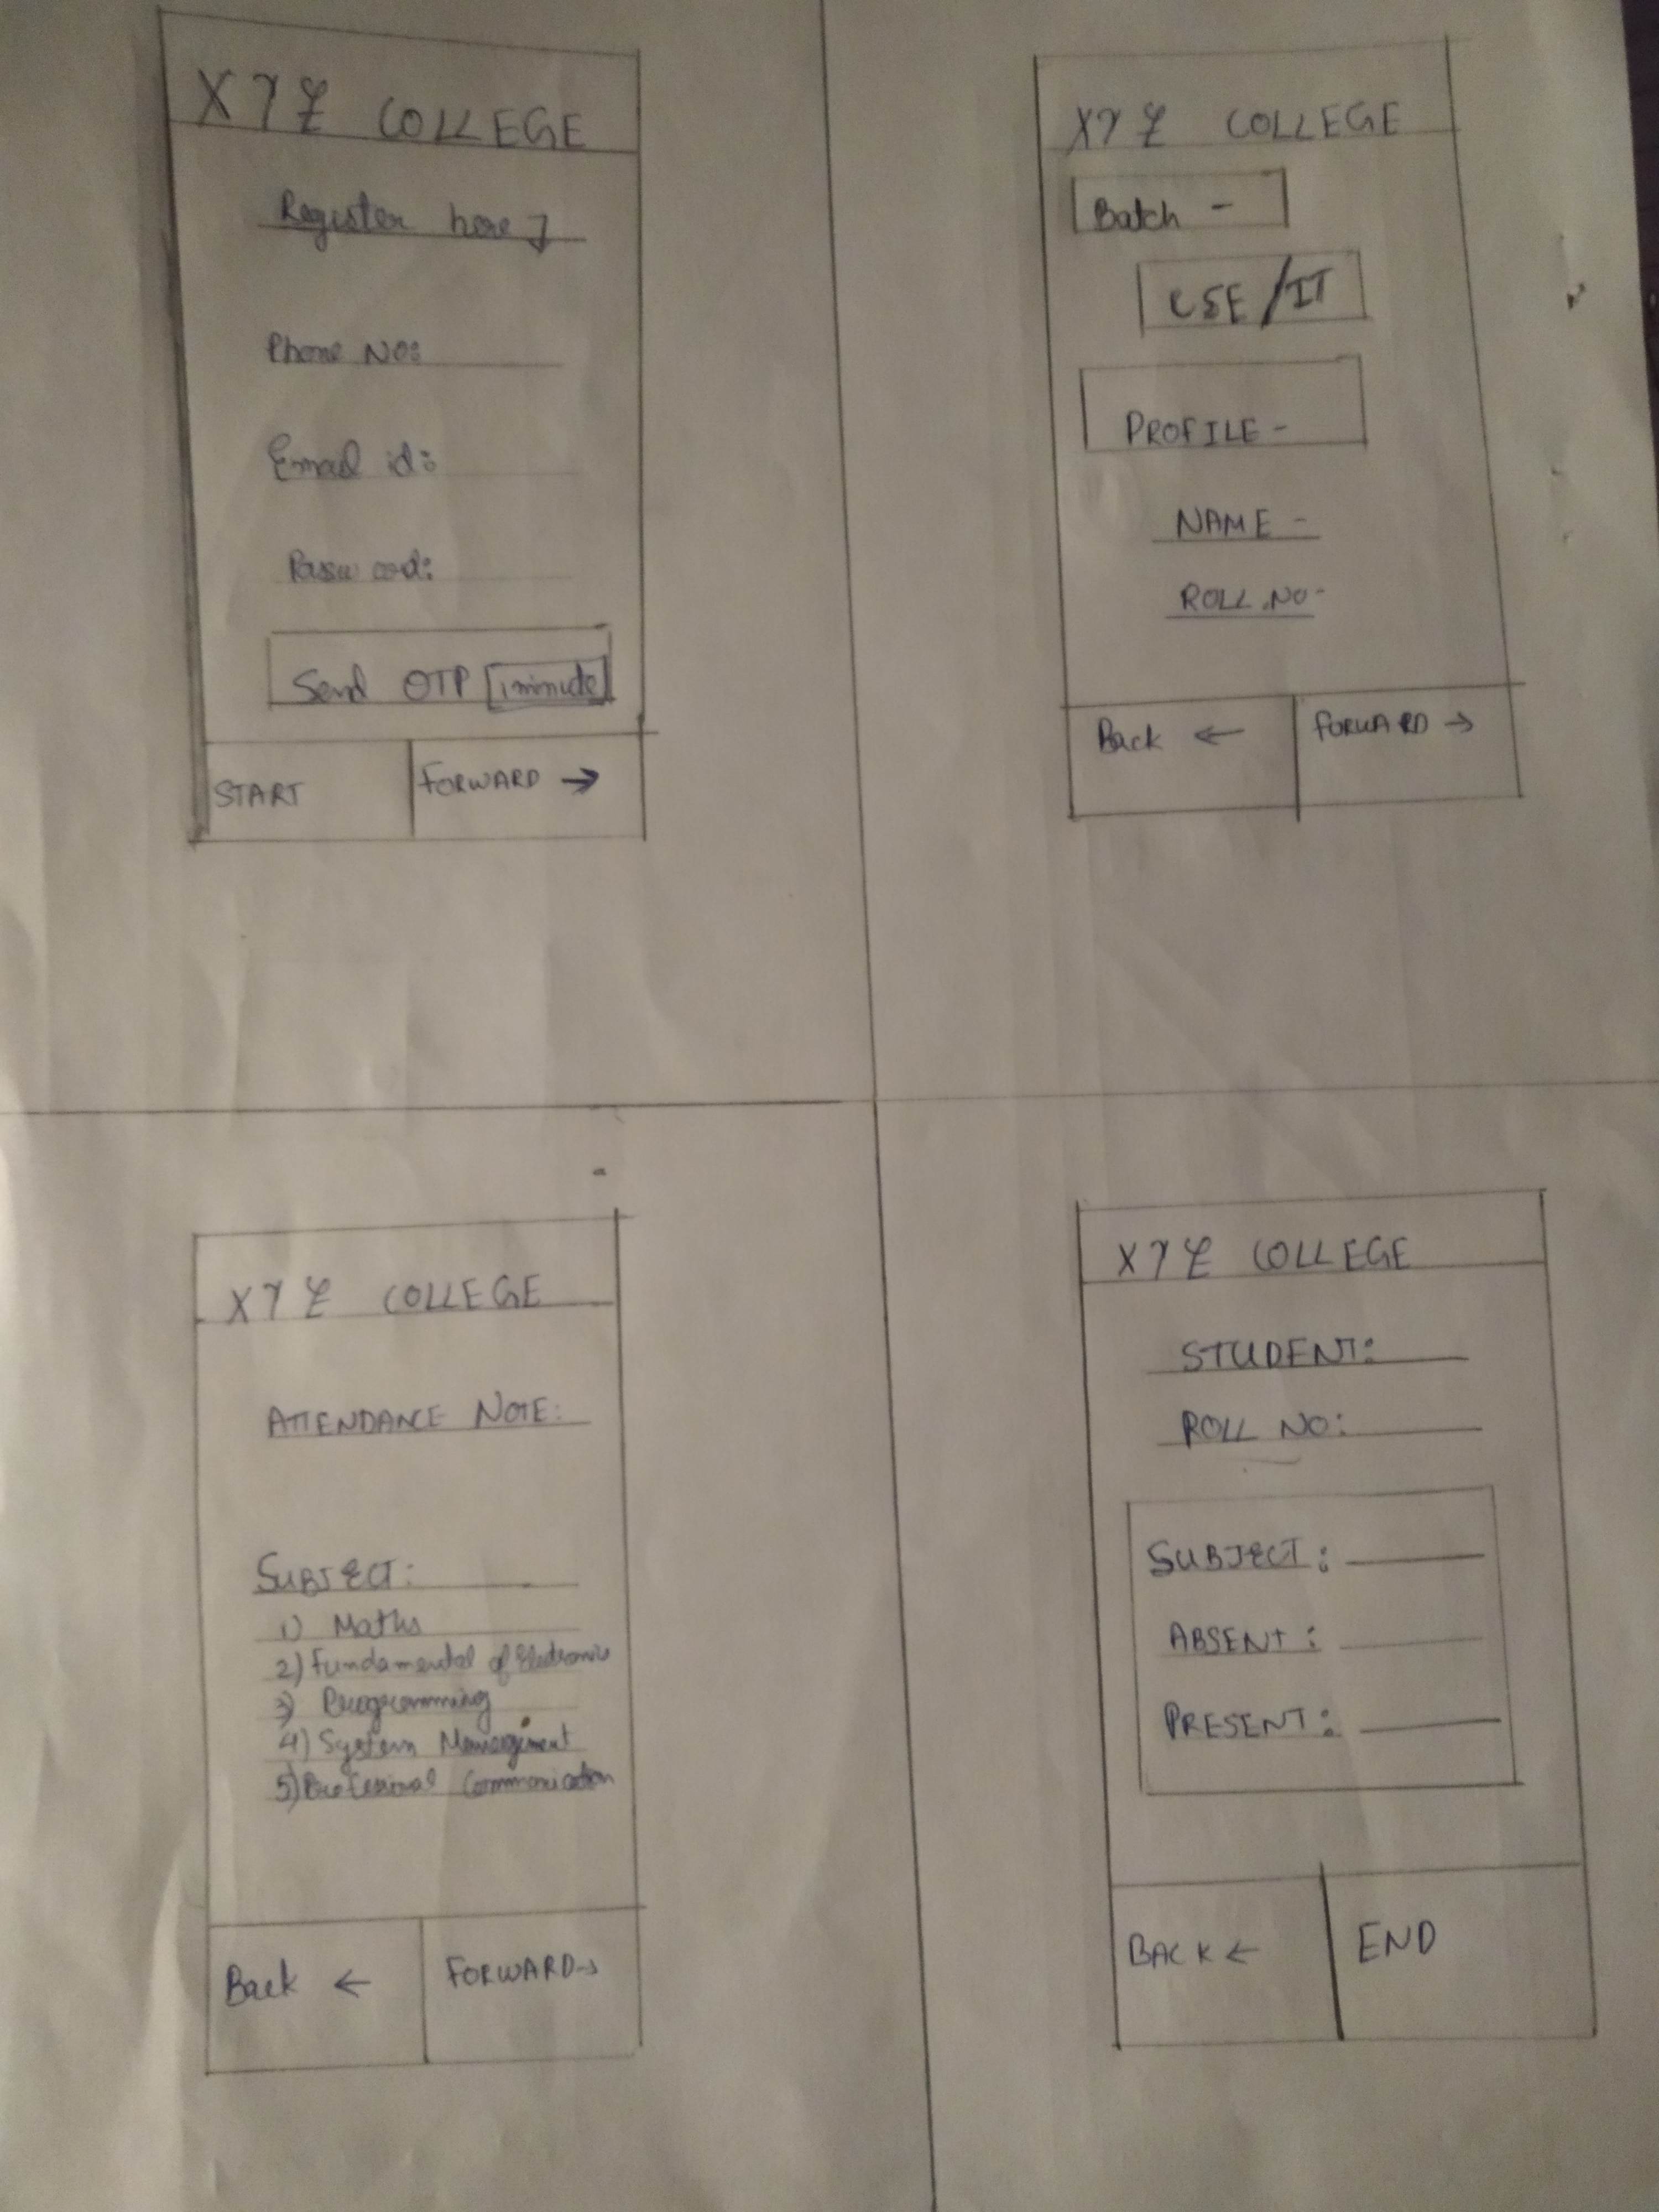 XYZ COLLEGE
Register here
Phone No:
Email id:
Send OTP 1 minute
START
FORWARD →
XYZ COLLEGE
Batch -
CSE/IT
PROFILE -
NAME -
ROLL NO-
Back ←
FORWARD →
XYZ COLLEGE
ATTENDANCE NOTE:
SUBJECT:
1) Maths
2) Fundamental of Electronic
3) Programming
4) System Management
5) Profesional Communication
Back ←
FORWARD→
XYZ COLLEGE
STUDENT:
ROLL NO:
SUBJECT:
ABSENT:
PRESENT:
BACK ←
END